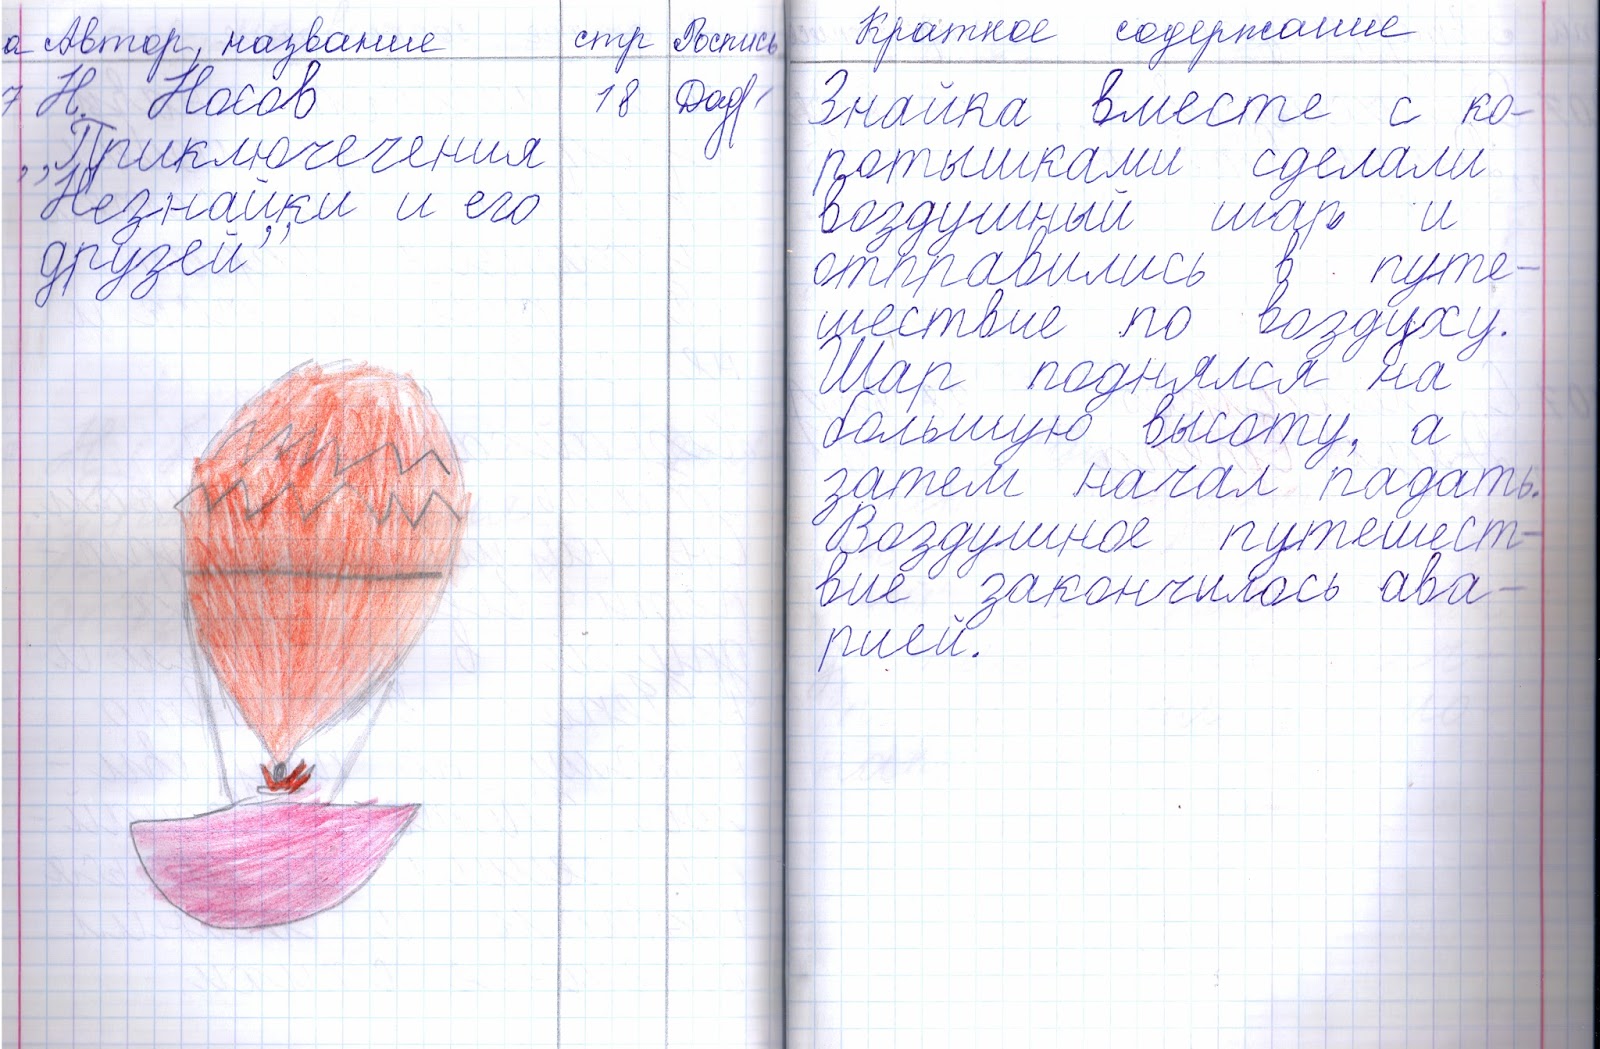 а Автор, название стр Роспись
7 Н. Носов 18
„Приключечения
Незнайки и его
друзей”
Краткое содержание
Знайка вместе с ко-
ротышками сделали
воздушный шар и
отправились в путе-
шествие по воздуху.
Шар поднялся на
большую высоту, а
затем начал падать.
Воздушное путешест-
вие закончилось ава-
рией.